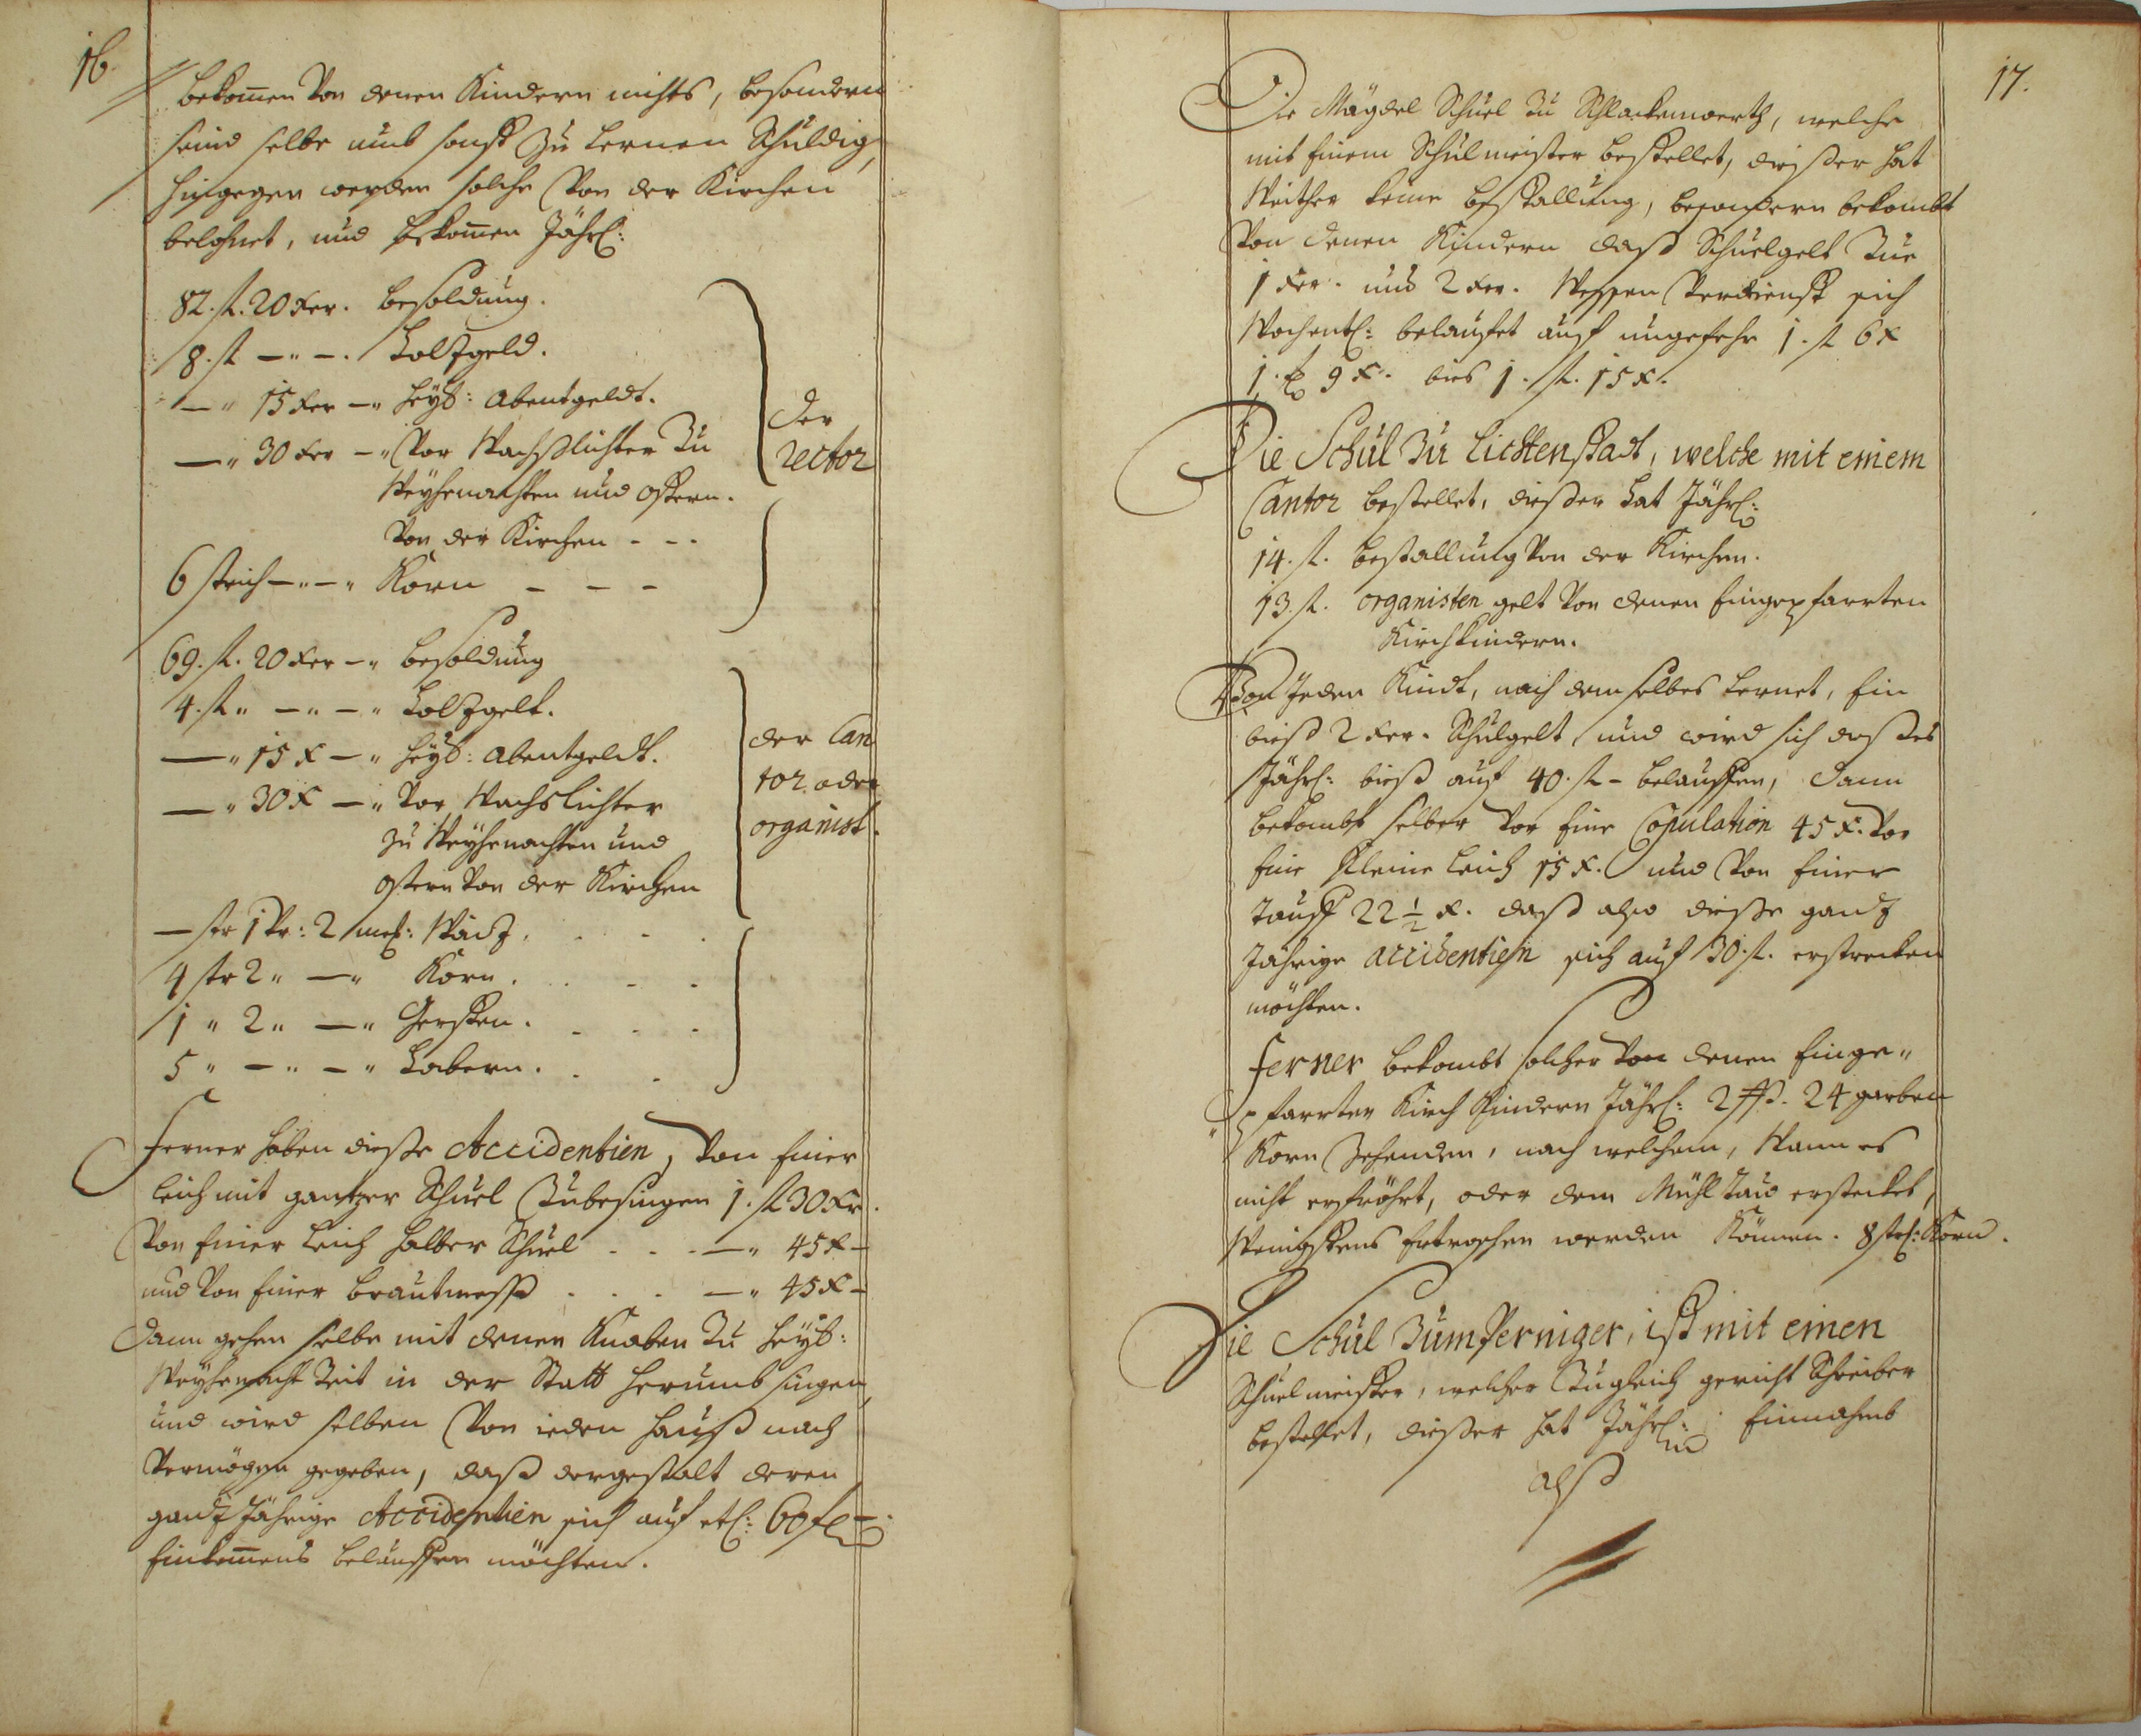 16.
bekom̄en von denen Kindern nichts, besondern
seind selbe umb sonst zu lernen Schuldig,
hingegen werden solche von der Kirchen
belohnet, und bekom̄en Jährl:
82. fl. 20 Xer. besoldung.
8. fl — " —. Holtzgeld.
— " 15 Xer — " Heyl: Abentgeldt.
— " 30 Xer — " vor Wachslichter zu
Weyhenachten und Ostern.
von der Kirchen - - -
der
rector
6 strich — " — " Korn - - -
69. fl. 20 Xer — " besoldung
4. fl " — " — " Holtzgelt.
— " 15 X — " Heyl: Abentgeldt.
— " 30 X — " vor Wachslichter
zu Weyhenachten und
Ostern von der Kirchen
der Can
tor oder
organist.
— str 1 Vr: 2 mes: Waitz.
4 str 2 " — " Korn.
1 " 2 " — " Gersten.
5 " — " — " Habern.
Ferner haben diesse Accidentien, von einer
leich mit gantzer Schuel zubesingen 1. fl 30 Xr.
von einer leich halber Schuel - - - — " 45 X —
und von einer brautmess - - - — " 45 X —
Dann gehen selbe mit denen Knaben zu Heyl:
Weyhenacht Zeit in der Statt herumb singen,
und wird selben von ieden Hauss nach
vermögen gegeben, dass dergestalt deren
gantz Jährige Accidentien sich auf etl: 60 fl —
einkom̄ens belauffen möchten.
17.
Die Mägdel Schuel zu Schlackenwerth, welche
mit einem Schulmeister bestellet, diesser hat
Weither keine bestallung, besondern bekombt
von denen Kindern dass Schuelgelt zue
1 Xer. und 2 Xer. Wessen verdienst sich
Wochentl: belaufet auf ungefehr 1. fl 6 X
1. fl 9 X. bis 1. fl. 15 X.
Die Schul zu Lichtenstadt, welche mit einem
Cantor bestellet, diesser hat Jährl:
14. fl. bestallung von der Kirchen.
13. fl. organisten gelt von denen Eingepfarrten
Kirchkindern.
Von Jeden Kindt, nach dem selbes lernet, Ein
biess 2 Xer. Schulgelt und wird sich dasses
Jährl: biess auf 40. fl - belauffen, dann
bekombt selber vor Eine Copulation 45 X. vor
Eine Kleine leich 15 X. und von Einer
Tauff 22 ½ X. dass also diesse gantz
Jährige accidentien sich auf 30. fl. erstrecken
möchten.
Ferner bekombt solcher von denen Einge"
"pfarrten Kirch Kindern Jährl: 2 ßß. 24 garben
Korn Zehenden, nach welchem, Wann es
nicht erfröhrt, oder dem Mühl Tau erstecket,
Wenigstens Getroschen werden Können. 8 str: Korn.
Die Schul zum Perniger, ist mit einen
Schuelmeister, welcher zugleich gericht Schreiber
bestellet, diesser hat Jährl: Einnahmb
alss